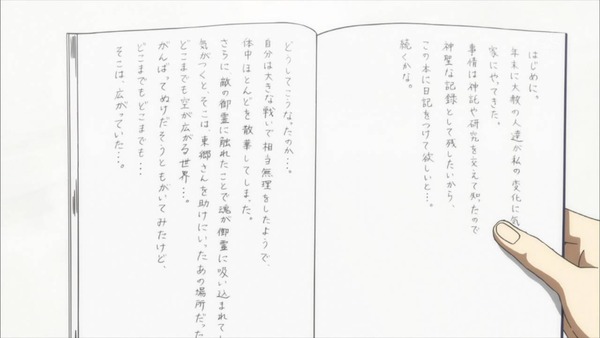 はじめに。
年末に大赦の人達が私の変化に気
家にやってきた。
事情は神託や研究を交えて知ったので
神聖な記録として残したいから、
この本に日記をつけて欲しいと…。
続くかな。
どうしてこうなったのか…。
自分は大きな戦いで相当無理をしたようで、
体中ほとんどを散華してしまった。
さらに敵の御霊に触れたことで魂が御霊に吸い込まれてし
気がつくと、そこは、東郷さんを助けにいったあの場所だった
どこまでも空が広がる世界…。
がんばってぬけだそうともがいてみたけど、
どこまでもどこまでも…
そこは、広がっていた…。